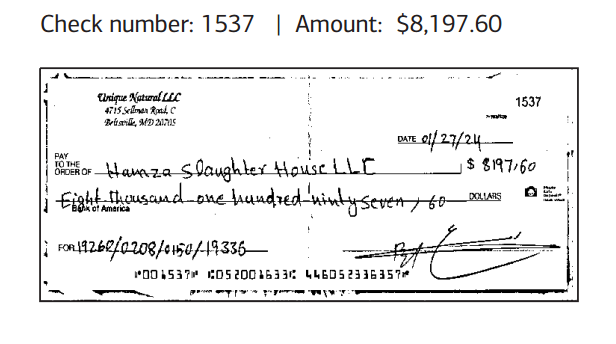 Check number: 1537 | Amount: $8,197.60
Unique Natural LLC
4715 Sellman Road, C
Beltsville, MD 20705
1537
DATE 01/27/24
PAY TO THE ORDER OF Hamza Slaughter House LLC $ 8197.60
Eight thousand one hundred ninty seven / 60 DOLLARS
Bank of America
FOR /0208/0150/19336
⑈001537⑈ ⑆052001633⑆ 446052336357⑈